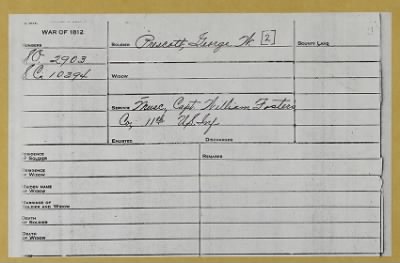 WAR OF 1812
NUMBERS
SOLDIER Prescott, George W. [2]
BOUNTY LAND
SO 2903
SC 10394
WIDOW
SERVICE Musc, Capt. William Fosters
Co, 11th U.S. Inf
ENLISTED
DISCHARGED
RESIDENCE OF SOLDIER
REMARKS
RESIDENCE OF WIDOW
MAIDEN NAME OF WIDOW
MARRIAGE OF SOLDIER AND WIDOW
DEATH OF SOLDIER
DEATH OF WIDOW